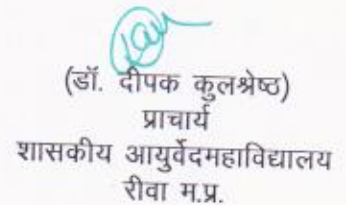 (डॉ. दीपक कुलश्रेष्ठ)
प्राचार्य
शासकीय आयुर्वेदमहाविद्यालय
रीवा म.प्र.